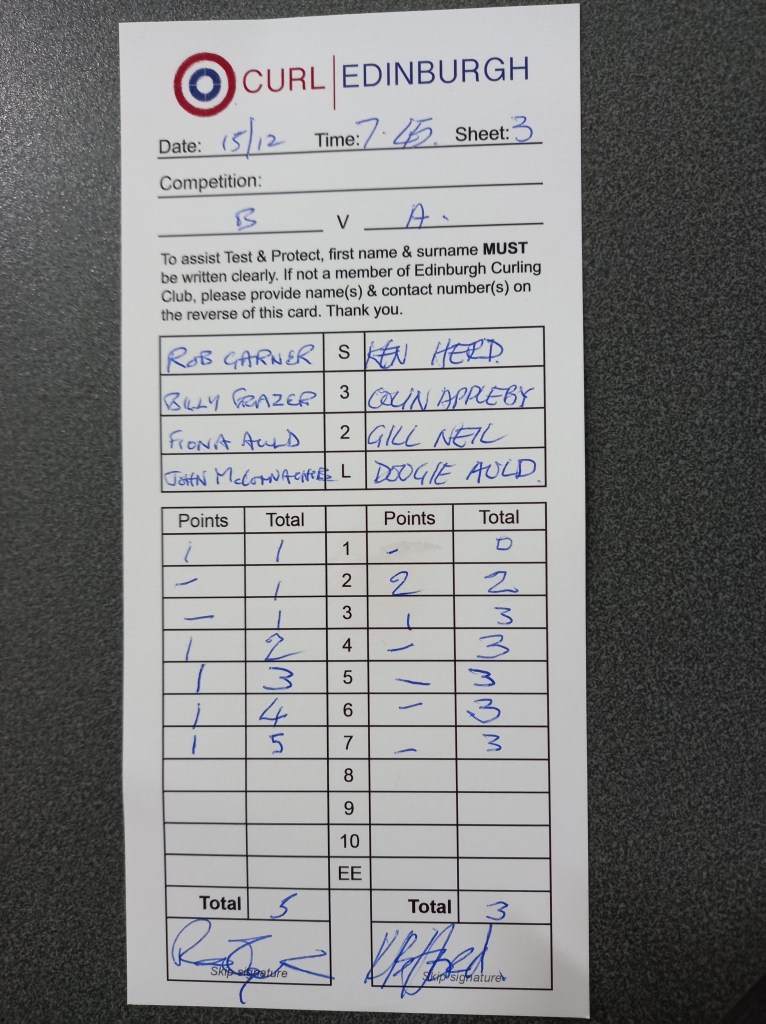 CURL | EDINBURGH
Date: 15/12 Time: 7.45. Sheet: 3
Competition:
B V A.
To assist Test & Protect, first name & surname MUST
be written clearly. If not a member of Edinburgh Curling
Club, please provide name(s) & contact number(s) on
the reverse of this card. Thank you.
ROB GARNER S KEN HERD.
BILLY FRAZER 3 COLIN APPLEBY
FIONA AULD 2 GILL NEIL
JOHN L DOUGIE AULD.
Points Total Points Total
1 1 1 - 0
- 1 2 2 2
- 1 3 1 3
1 2 4 - 3
1 3 5 - 3
1 4 6 - 3
1 5 7 - 3
8
9
10
EE
Total 5 Total 3
Skip signature Skip signature